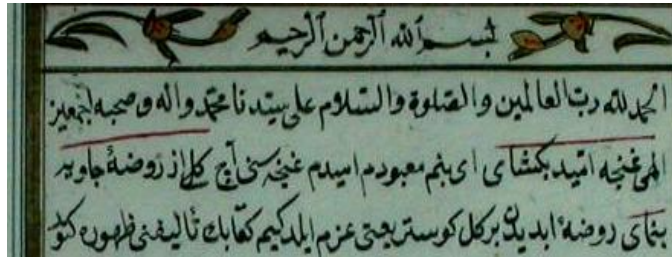 بسم الله الرحمن الرحيم
الحمد لله رب العالمين والصلوة والسلام على سيدنا محمد واله وصحبه اجمعين
الهى غنچه اميد بكشاى اى بنم معبودم اميدم غنچه سنى آچ كلى از روضهٔ جاويد
بنماى روضهٔ ابديدن بر كل كوستر يعنى عزم ايلدكيم كتابك تأليفنى ظهوره